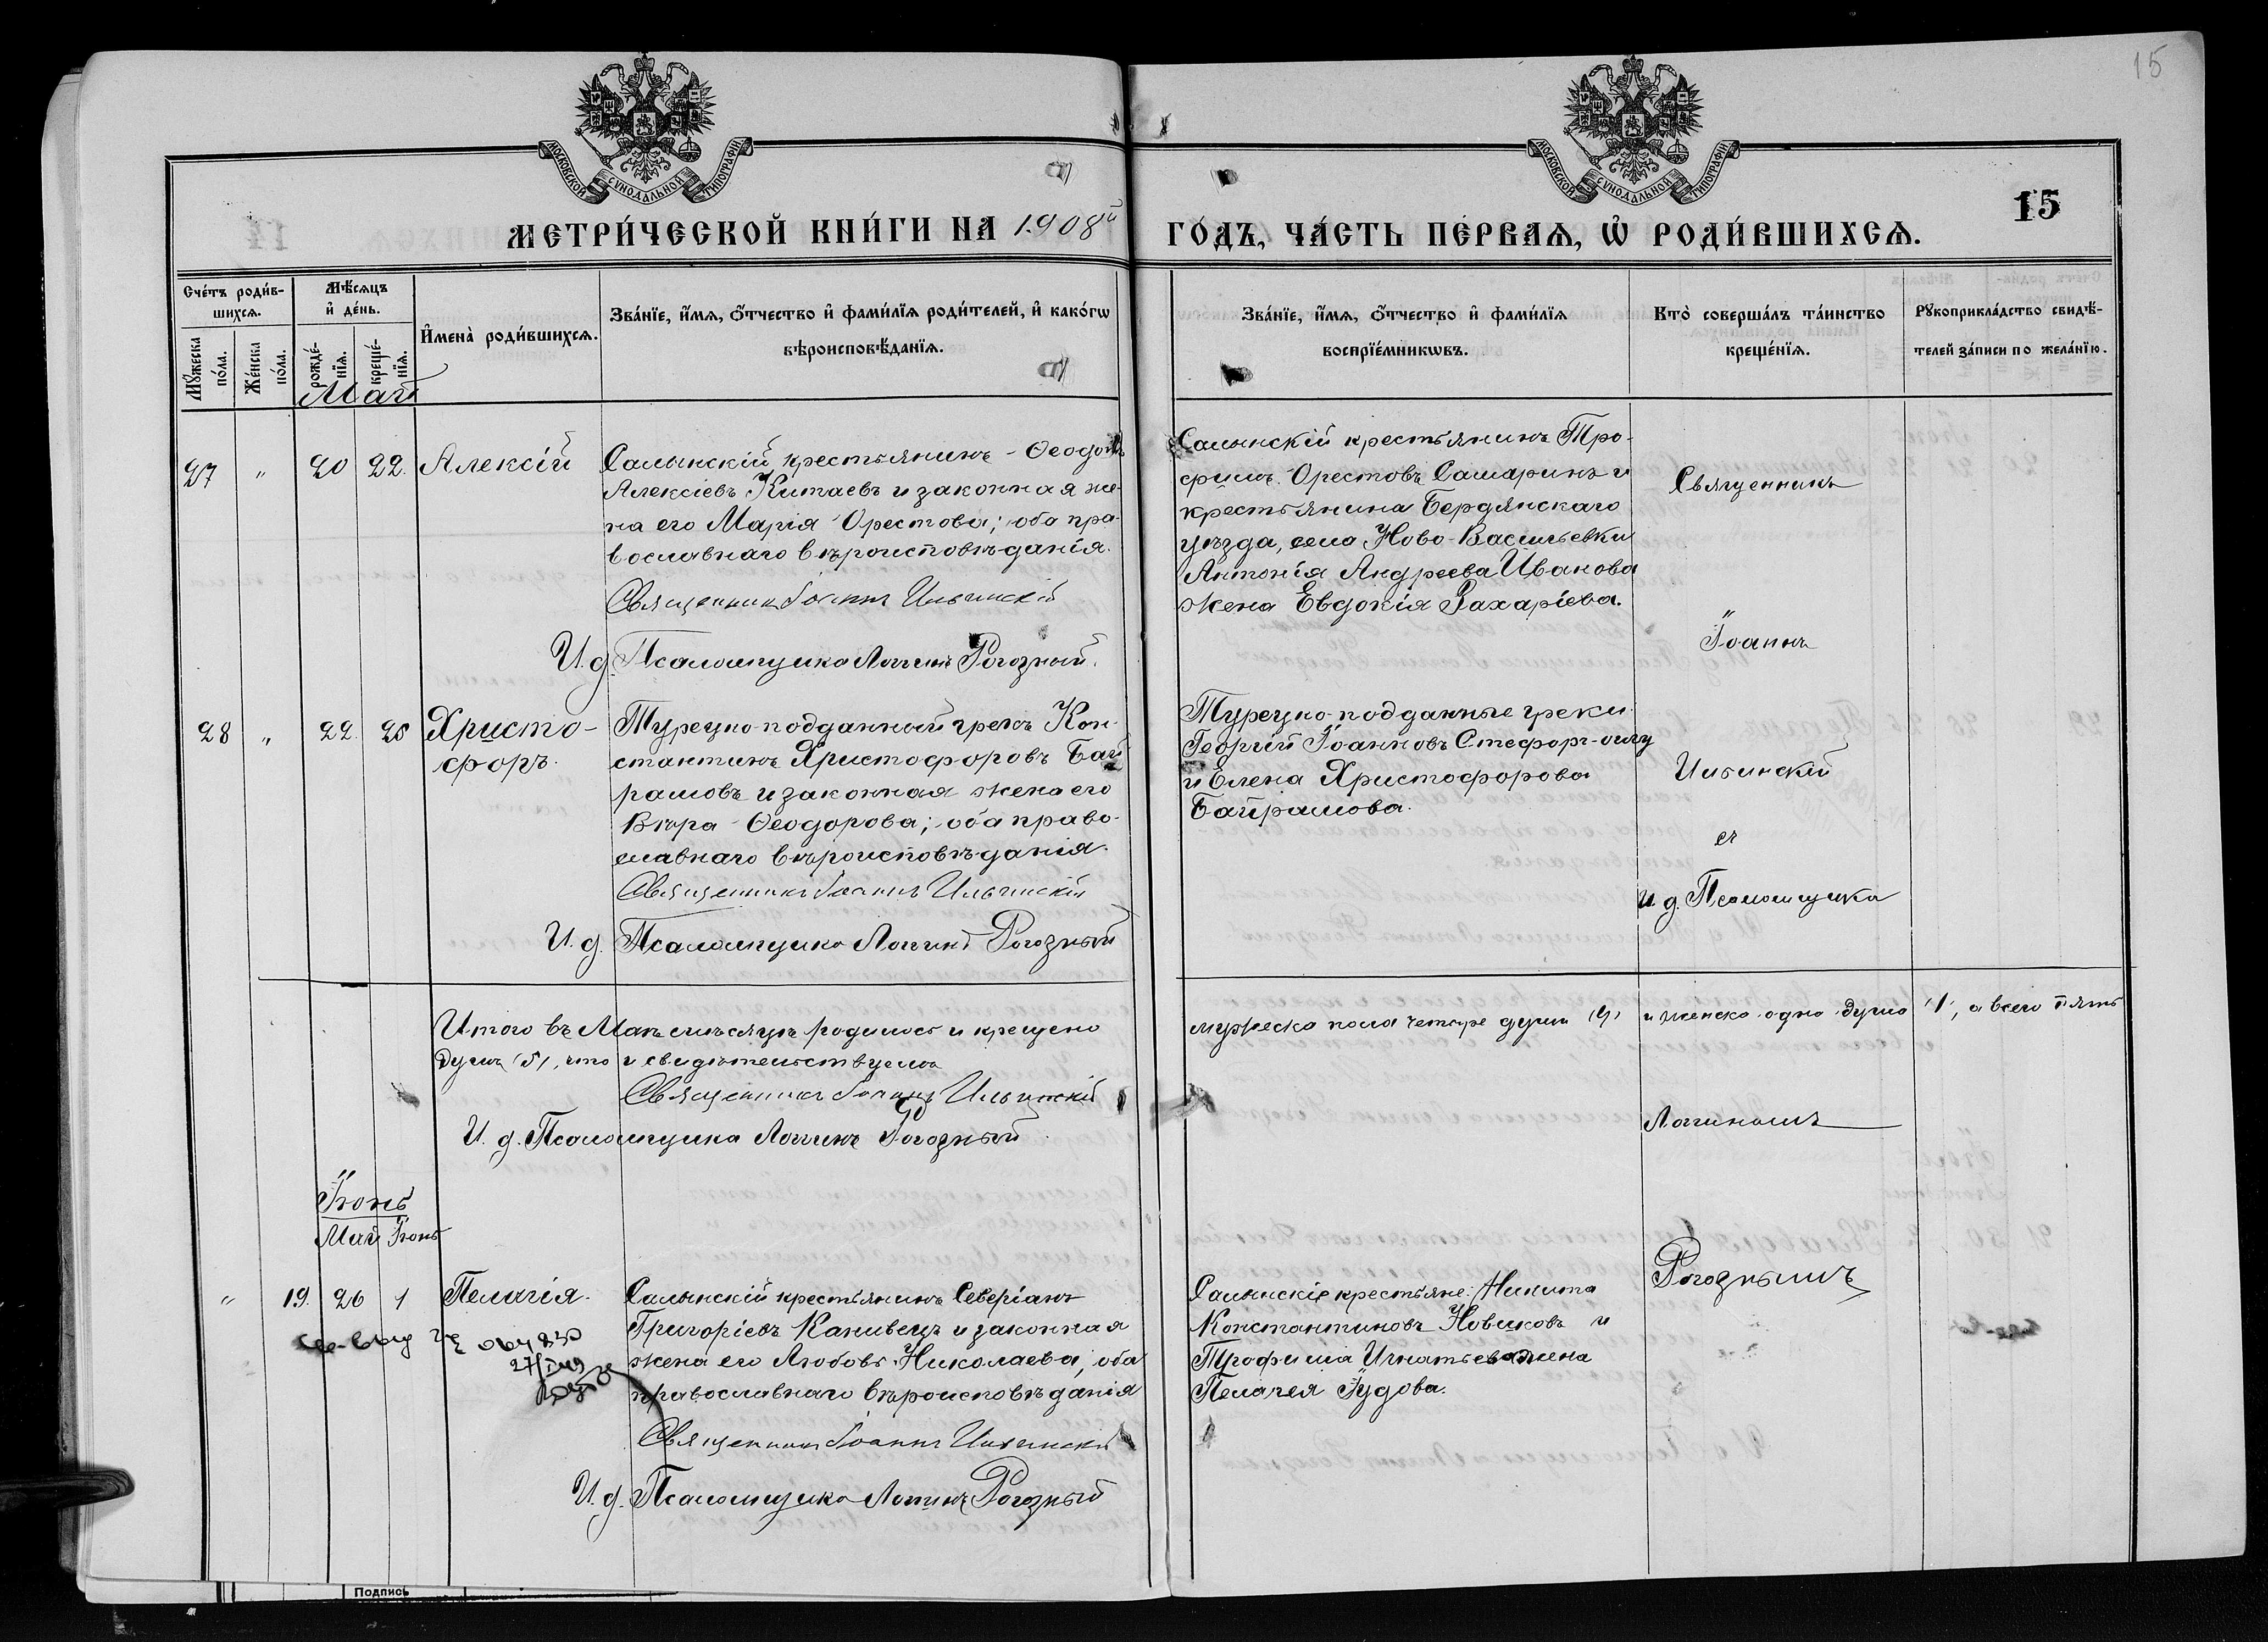 15
МОСКОВСКОЙ СѴНОДАЛЬНОЙ ТИПОГРАФІИ
МОСКОВСКОЙ СѴНОДАЛЬНОЙ ТИПОГРАФІИ
15
МЕТРИ́ЧЕСКОЙ КНИ́ГИ НА 1908й
ГО́ДЪ, ЧА́СТЬ ПЕ́РВАѦ, Ѡ҆ РОДИ́ВШИХСѦ.
Сче́тъ роди́в-
шихсѧ.
Мѣ́сѧцъ
и҆ де́нь.
И҆мена̀ роди́вшихсѧ.
Зва́нїе, и҆́мѧ, ѻ҆́тчество и҆ фами́лїѧ роди́телей, и҆ како́гѡ
вѣроисповѣ́данїѧ.
Мꙋ́жеска
по́ла.
Же́нска
по́ла.
рожде́-
нїѧ.
креще́-
нїѧ.
Май
Зва́нїе, и҆́мѧ, ѻ҆́тчество и҆ фами́лїѧ
воспрїе́мникѡвъ.
Кто̀ соверша́лъ та́инство
креще́нїѧ.
Рꙋкоприкла́дство свидѣ́-
телей за́писи по жела́нїю.
27 " 20 22. Алексій
Салынскій крестьянинъ - Ѳеодоръ
Алексіевъ Китаевъ и законная же-
на его Марія Орестова; оба пра-
вославнаго вѣроисповѣданія.
Священникъ Іоаннъ Ильинскій
И.д. Псаломщика Логинъ Рогозный.
Салынскій крестьянинъ Тро-
фимъ Орестовъ Самаринъ и
крестьянина Бердянскаго
уѣзда, села Ново-Васильевки
Антонія Андреева Иванова
жена Евдокія Захаріева.
Священникъ
Іоаннъ
28 " 22. 25 Христо-
форъ.
Турецко-подданный грекъ Кон-
стантинъ Христофоровъ Бай
рамовъ и законная жена его
Вѣра Ѳеодорова; оба право-
славнаго вѣроисповѣданія.
Священникъ Іоаннъ Ильинскій
И.д. Псаломщика Логинъ Рогозный
Турецко-подданные греки
Георгій Іоанновъ Стефорг-оглу
и Елена Христофорова
Байрамова.
Ильинскій
съ
и.д. Псаломщика
Итого въ Маѣ мѣсяцѣ родилось и крещено
мужеска пола четыре души (4) и женска одна душа (1), а всего пять
душъ (5), что и свидѣтельствуемъ
Священникъ Іоаннъ Ильинскій
И.д. Псаломщика Логинъ Рогозный
Логиномъ
Іюнь
Май Іюнь
" 19. 26 1 Пелагія.
27/
Салынскій крестьянинъ Северіанъ
Григоріевъ Канивецъ и законная
жена его Любовь Николаева; оба
православнаго вѣроисповѣданія
Священникъ Іоаннъ Ильинскій
И.д. Псаломщика Логинъ Рогозный
Салынскіе крестьяне: Никита
Константиновъ Новиковъ и
Трофима Игнатьева жена
Пелагея Гудова.
Рогознымъ
Подпись